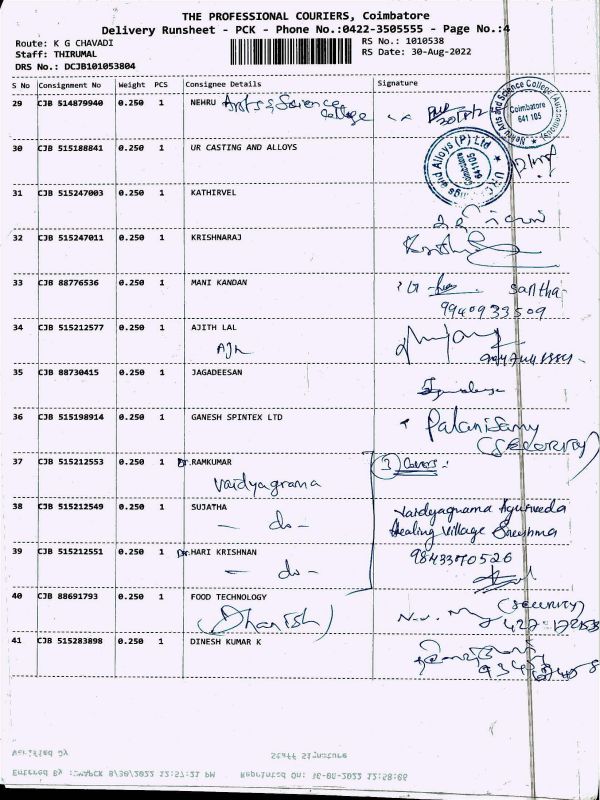 THE PROFESSIONAL COURIERS, Coimbatore
Delivery Runsheet - PCK - Phone No.:0422-3505555 - Page No.:4
Route: K G CHAVADI
RS No.: 1010538
Staff: THIRUMAL
RS Date: 30-Aug-2022
DRS No.: DCJB101053804
S No Consignment No Weight PCS Consignee Details Signature
29 CJB 514879940 0.250 1 NEHRU Arts & Science College
Nehru Arts and Science College (Autonomous)
Coimbatore
641 105
30 CJB 515188841 0.250 1 UR CASTING AND ALLOYS
and Alloys (P) Ltd
Coimbatore
641105
31 CJB 515247003 0.250 1 KATHIRVEL
32 CJB 515247011 0.250 1 KRISHNARAJ
33 CJB 88776536 0.250 1 MANI KANDAN Santha
9940933509
34 CJB 515212577 0.250 1 AJITH LAL
35 CJB 88730415 0.250 1 JAGADEESAN
36 CJB 515198914 0.250 1 GANESH SPINTEX LTD Palanisamy
(SECORITY)
37 CJB 515212553 0.250 1 Dr.RAMKUMAR 3 Covers:
Vaidyagrama
38 CJB 515212549 0.250 1 SUJATHA Vaidyagrama Ayurveda
- do - Healing Village
39 CJB 515212551 0.250 1 Dr.HARI KRISHNAN 9843370526
- do -
40 CJB 88691793 0.250 1 FOOD TECHNOLOGY (Security)
(Dhanish)
41 CJB 515283898 0.250 1 DINESH KUMAR K
Verified By Staff Signature
Entered By : PCK 8/30/2022 12:57:21 PM Reprinted On: